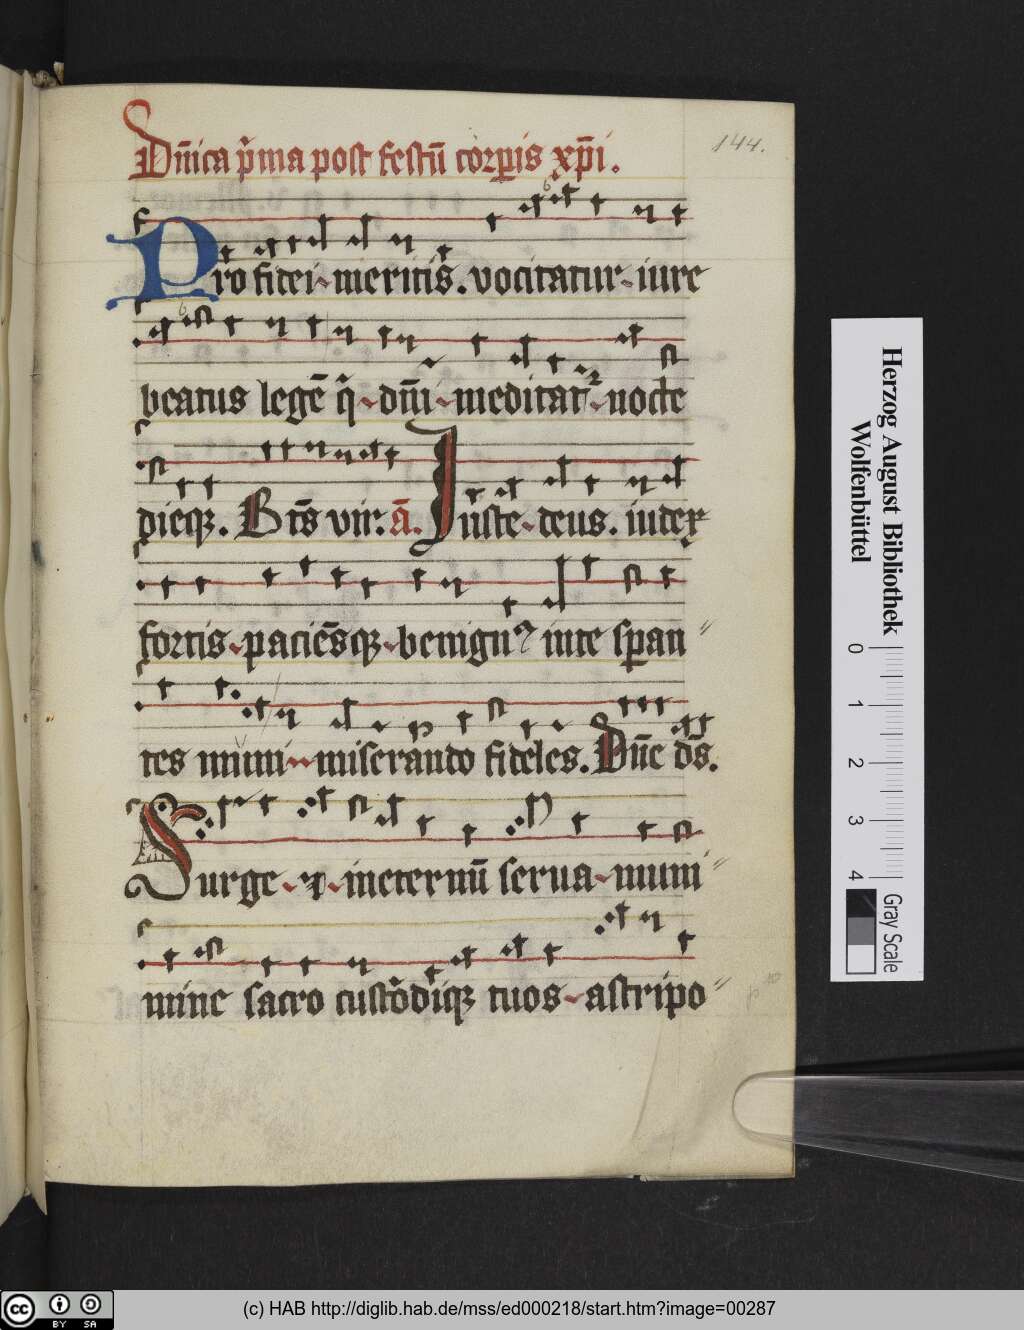 Dn̄ica p̄ma post festū corꝑis xp̄i.
144.
Pro fidei meritis. vocitatur iure
beatus legē q̄ dn̄i meditatᷣ nocte
dieqꝫ. Bt̄s vir: ā. Iuste deus. iudex
fortis paciēsqꝫ benignꝰ inte speran
tes muni miserando fideles. Dn̄e ds̄.
Surge et ineternū serua muni
mine sacro custōdiqꝫ tuos astripo
Herzog August Bibliothek
Wolfenbüttel
0 1 2 3 4
Gray Scale
cc BY SA
(c) HAB http://diglib.hab.de/mss/ed000218/start.htm?image=00287